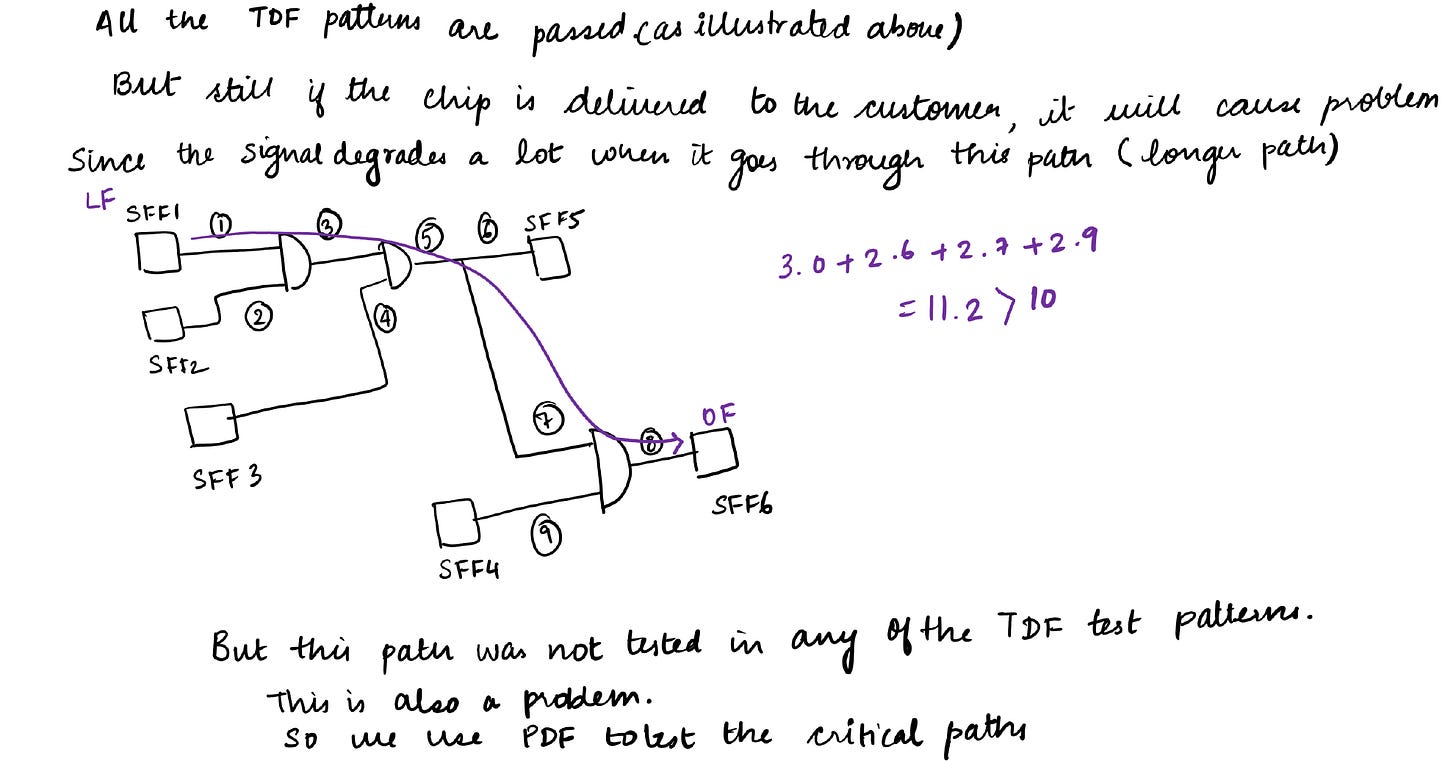 All the TDF patterns are passed (as illustrated above)
But still if the chip is delivered to the customer, it will cause problem
Since the signal degrades a lot when it goes through this path (longer path)
LF
SFF1 ① ③ ⑤ ⑥ SFF5
3.0 + 2.6 + 2.7 + 2.9
= 11.2 > 10
② ④
SFF2
⑦ OF
⑧
SFF3
SFF6
⑨
SFF4
But this path was not tested in any of the TDF test patterns.
This is also a problem.
So we use PDF to test the critical paths